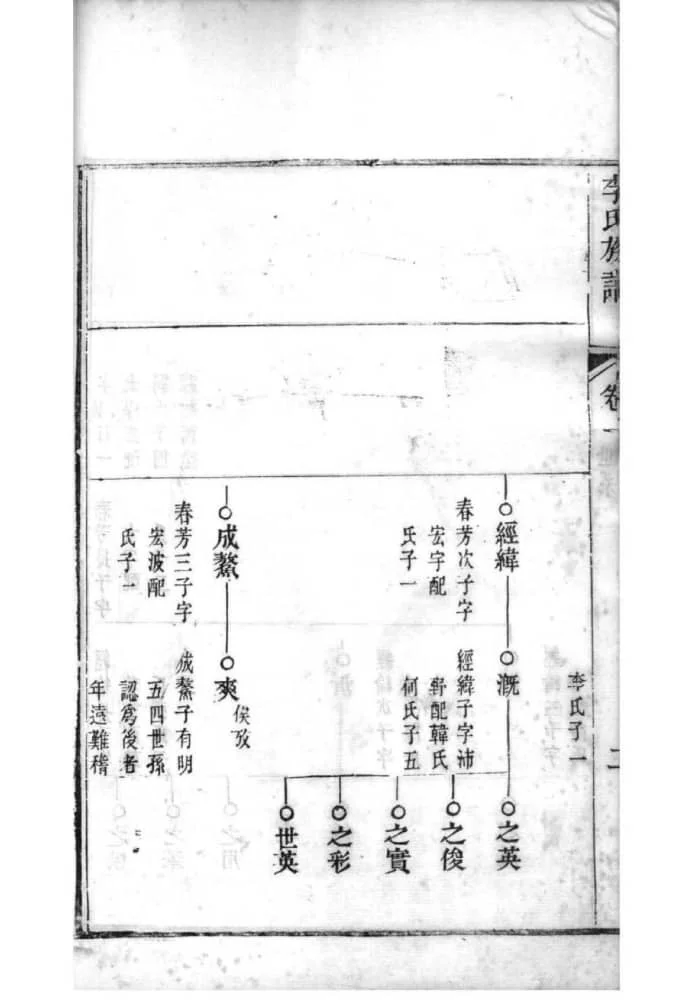 李氏族譜
卷一
二
李氏子一
經緯
春芳次子字
宏宇配
氏子一
溉
經緯子字沛
野配韓氏
何氏子五
之英
之俊
之實
之彩
世英
成鰲
春芳三子字
宏波配
氏子一
爽
俟攷
成鰲子有明
五四世孫
認爲後者
年遠難稽